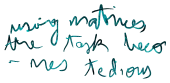 using matrices
the task beco
- mes tedious